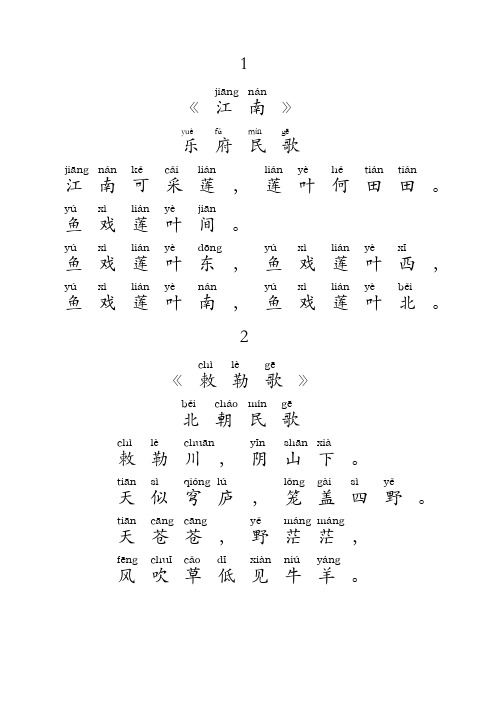 1
jiāng nán
《江南》
yuè fǔ mín gē
乐府民歌
jiāng nán kě cǎi lián lián yè hé tián tián
江南可采莲，莲叶何田田。
yú xì lián yè jiān
鱼戏莲叶间。
yú xì lián yè dōng yú xì lián yè xī
鱼戏莲叶东，鱼戏莲叶西，
yú xì lián yè nán yú xì lián yè běi
鱼戏莲叶南，鱼戏莲叶北。
2
chì lè gē
《敕勒歌》
běi cháo mín gē
北朝民歌
chì lè chuān yīn shān xià
敕勒川，阴山下。
tiān sì qióng lú lǒng gài sì yě
天似穹庐，笼盖四野。
tiān cāng cāng yě máng máng
天苍苍，野茫茫，
fēng chuī cǎo dī xiàn niú yáng
风吹草低见牛羊。